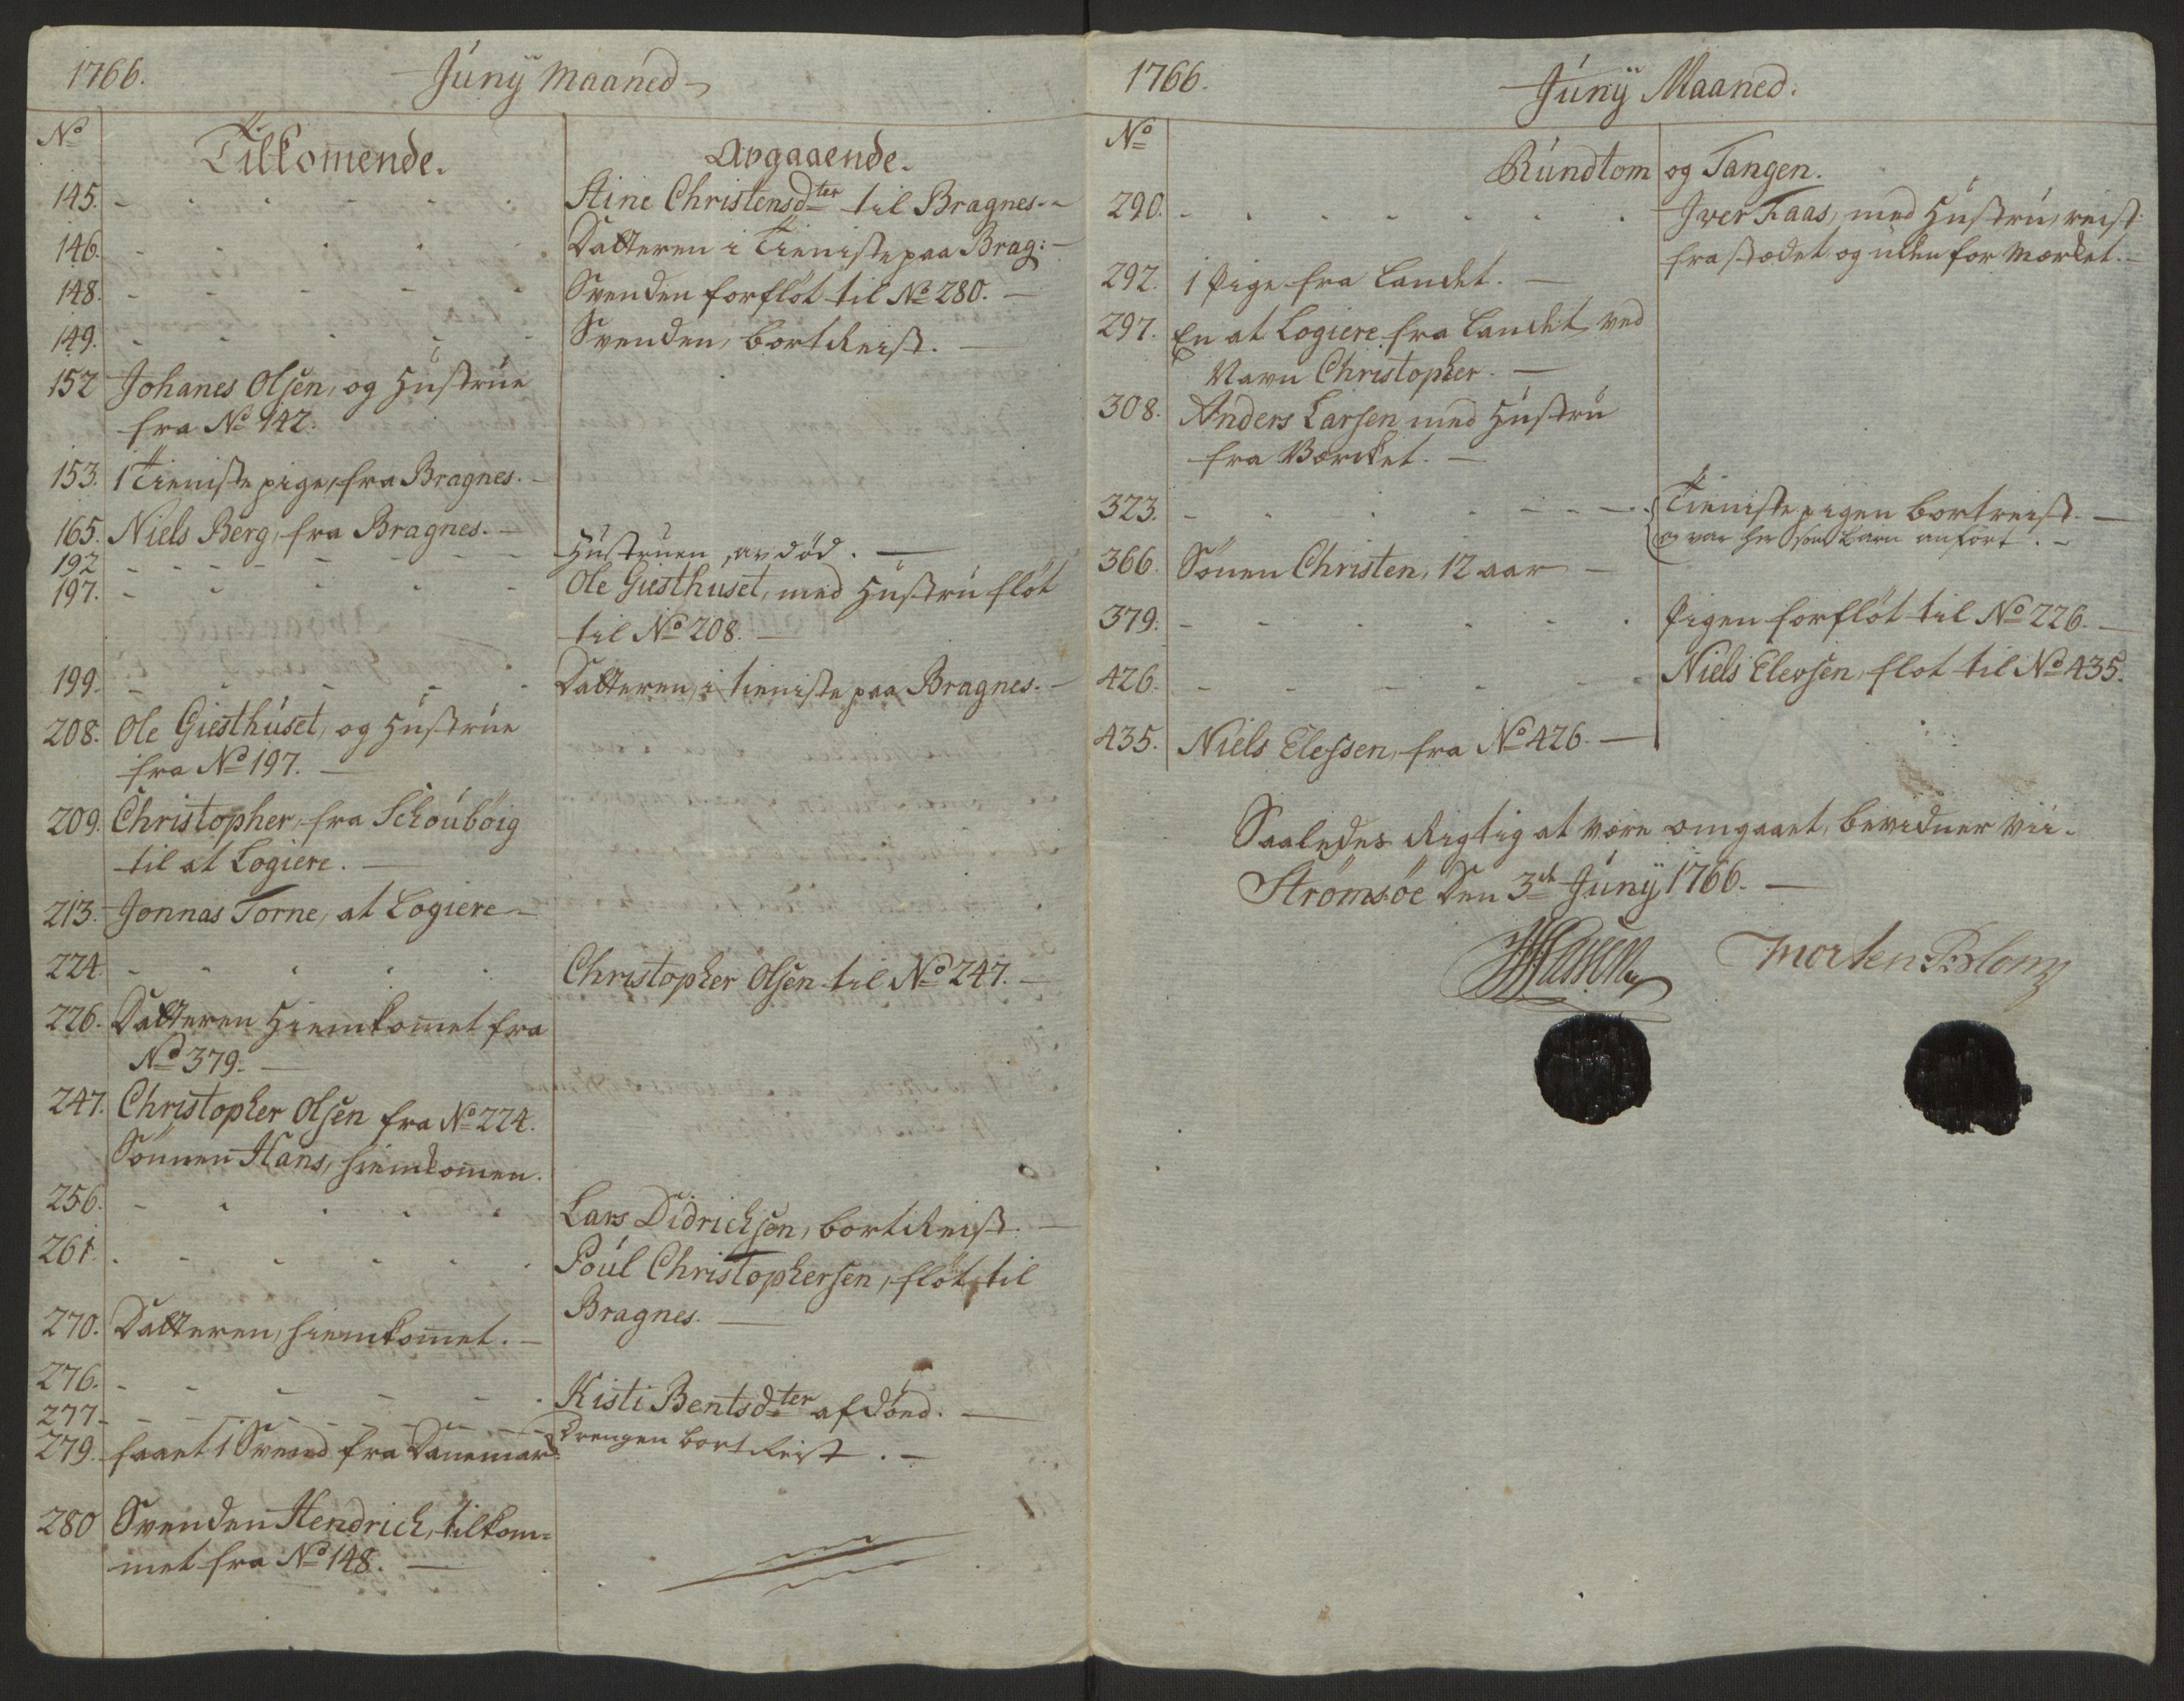 1766. Júnÿ Maaned
No Tilkomende. Avgaaende.
145. - - - - - Stine Christensdter til Bragnes. -
146. - - - - - Datteren i Tieniste paa Brag: -
148. - - - - - Svenden forfløt til No 280. -
149. - - - - - Svenden, bortReist. -
152 Johanes Olsen, og Hústrúe
fra No 142.
153. 1 Tieniste pige, fra Bragnes. -
165. Niels Berg, fra Bragnes. -
192 - - - - - - Hústrúen, avdød. -
197. - - - - - Ole Giesthuset, med Hústrú fløt
til No 208. -
199. - - - - - Datteren, i tieniste paa Bragnes. -
208. Ole Giesthúset, og Hústrúe
fra No 197. -
209. Christopher, fra Schoúbøig
til at Logiere. -
213. Jonnas Torne, at Logiere -
224. - - - - - Christopher Olsen til No 247. -
226. Datteren Hiemkomet fra
No 379. -
247. Christopher Olsen fra No 224.
Sønnen Hans, hiemkomen.
256. - - - - - Lars Didrichsen, bortReist. -
261. - - - - - - Poúl Christophersen, fløt til
Bragnes. -
270. Datteren, hiemkomet. -
276. - - - - - - Kisti Bentsdter afdøed. -
277. - - - - - - Drengen bortReist. -
279. faaet 1 Svend fra Danemark
280 Svenden Hendrich, tilkom=
met fra No 148. -
1766. Júnÿ Maaned.
No
Rúndtom og Tangen.
290. - - - - - - Iver Faas, med Hústrú, reist
fra stædet og úden for Mærket. -
292. 1 Pige fra Landet. -
297. En at Logiere fra Landet, ved
Navn Christopher. -
308. Anders Larsen med Hústrú
fra Værcket. -
323. - - - - - - Tieniste pigen bortreist. -
og var her som barn anført. -
366. Sønen Christen, 12 aar -
379. - - - - - - Pigen forfløt til No 226. -
426. - - - - - - Niels Elevsen, flot til No 435.
435. Niels Elefsen, fra No 426. -
Saaledes Rigtig at være omgaaet, bevidner vii.
Strømsøe Den 3de Júnÿ 1766. -
Morten Blom